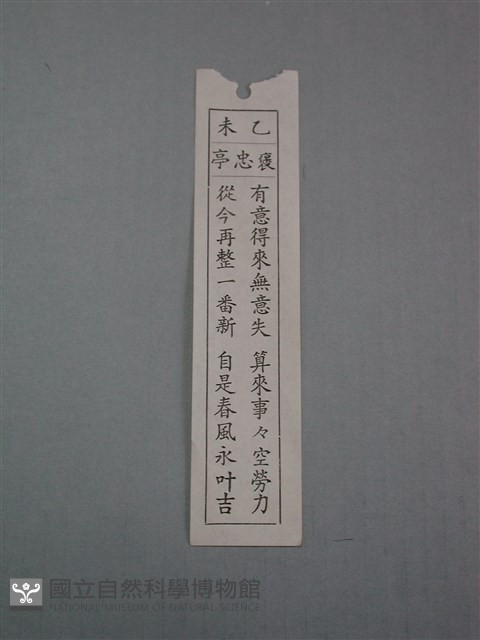 乙未
褒忠亭
有意得來無意失 算來事々空勞力
從今再整一番新 自是春風永叶吉
國立自然科學博物館
NATIONAL MUSEUM OF NATURAL SCIENCE